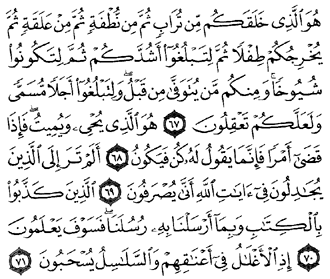 هُوَ ٱلَّذِى خَلَقَكُم مِّن تُرَابٍ ثُمَّ مِن نُّطْفَةٍ ثُمَّ مِنْ عَلَقَةٍ ثُمَّ
يُخْرِجُكُمْ طِفْلًا ثُمَّ لِتَبْلُغُوٓا۟ أَشُدَّكُمْ ثُمَّ لِتَكُونُوا۟
شُيُوخًا ۚ وَمِنكُم مَّن يُتَوَفَّىٰ مِن قَبْلُ ۖ وَلِتَبْلُغُوٓا۟ أَجَلًا مُّسَمًّى
وَلَعَلَّكُمْ تَعْقِلُونَ ٦٧ هُوَ ٱلَّذِى يُحْىِۦ وَيُمِيتُ ۖ فَإِذَا
قَضَىٰٓ أَمْرًا فَإِنَّمَا يَقُولُ لَهُۥ كُن فَيَكُونُ ٦٨ أَلَمْ تَرَ إِلَى ٱلَّذِينَ
يُجَٰدِلُونَ فِىٓ ءَايَٰتِ ٱللَّهِ أَنَّىٰ يُصْرَفُونَ ٦٩ ٱلَّذِينَ كَذَّبُوا۟
بِٱلْكِتَٰبِ وَبِمَآ أَرْسَلْنَا بِهِۦ رُسُلَنَا ۖ فَسَوْفَ يَعْلَمُونَ
٧٠ إِذِ ٱلْأَغْلَٰلُ فِىٓ أَعْنَٰقِهِمْ وَٱلسَّلَٰسِلُ يُسْحَبُونَ ٧١